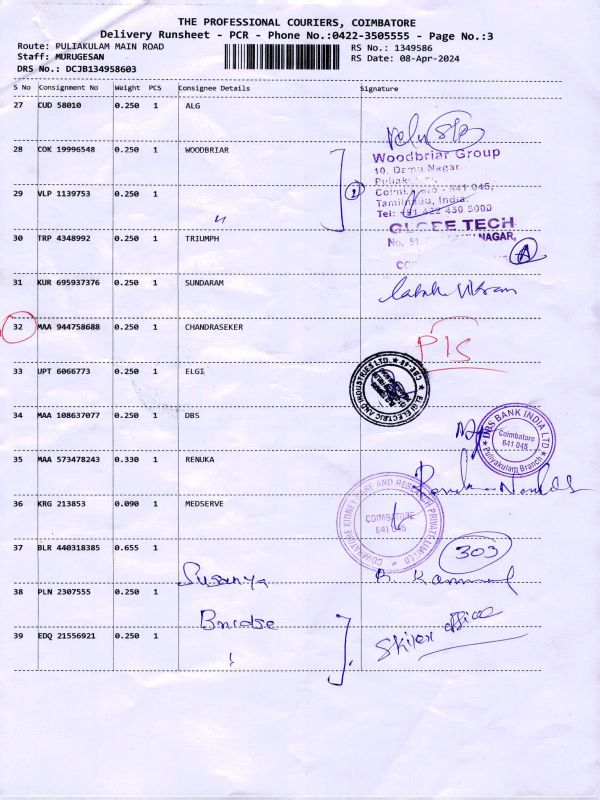 THE PROFESSIONAL COURIERS, COIMBATORE
Delivery Runsheet - PCR - Phone No.:0422-3505555 - Page No.:3
Route: PULIAKULAM MAIN ROAD
RS No.: 1349586
Staff: MURUGESAN
RS Date: 08-Apr-2024
DRS No.: DCJB134958603
S No Consignment No Weight PCS Consignee Details Signature
27 CUD 58010 0.250 1 ALG
28 COK 19996548 0.250 1 WOODBRIAR
Woodbriar Group
10, Damu Nagar
641 045,
Tamilnadu, India.
Tel: +91 422 430 5000
29 VLP 1139753 0.250 1 "
GLOBE TECH
No. 51, NAGAR,
30 TRP 4348992 0.250 1 TRIUMPH
31 KUR 695937376 0.250 1 SUNDARAM
32 MAA 944758688 0.250 1 CHANDRASEKER
PIS
33 UPT 6066773 0.250 1 ELGI
ELGI ELECTRIC AND INDUSTRIES LTD.
34 MAA 108637077 0.250 1 DBS
DBS BANK INDIA LTD
Coimbatore
641 045
Puliyakulam Branch
35 MAA 573478243 0.330 1 RENUKA
36 KRG 213853 0.090 1 MEDSERVE
COIMBATORE KIDNEY CARE AND RESEARCH PRIVATE LIMITED
COIMBATORE
641 045
37 BLR 440318385 0.655 1
303
Susanya
38 PLN 2307555 0.250 1
Bridge
39 EDQ 21556921 0.250 1
office